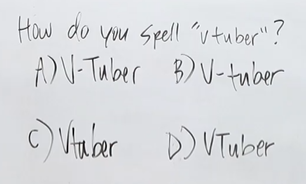 How do you spell "vtuber"?
A) V-Tuber B) V-tuber
C) Vtuber D) VTuber